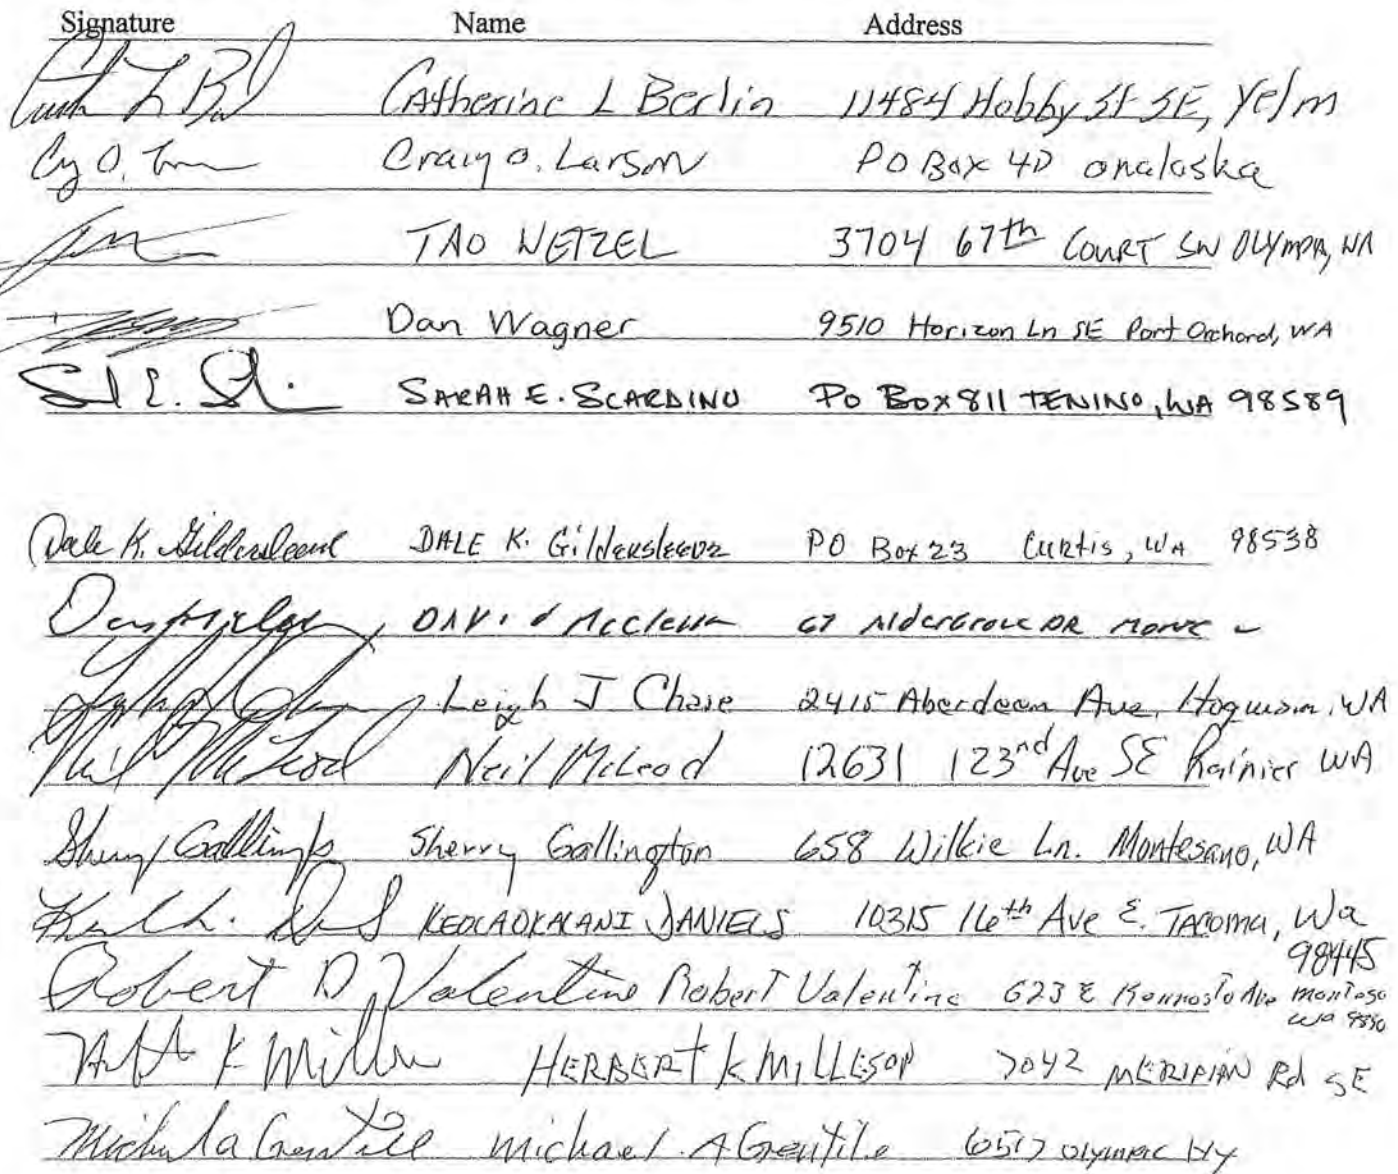 Signature Name Address
Catherine L Berlin 11484 Hobby St SE, Yelm
Craig O. Larson PO Box 4D Onalaska
TAO WETZEL 3704 67th COURT SW OLYMPIA, WA
Dan Wagner 9510 Horizon Ln SE Port Orchard, WA
SARAH E. SCARDINO PO BOX 811 TENINO, WA 98589
Dale K. Gildersleeve DALE K. GilderSleeve PO Box 23 Curtis, WA 98538
DAVid McClellan 67 AlderGrove DR
Leigh J Chase 2415 Aberdeen Ave, Hoquiam, WA
Neil McLeod Neil McLeod 12631 123rd Ave SE Rainier WA
Sherry Gallington Sherry Gallington 658 Wilkie Ln. Montesano, WA
DANIELS 10315 16th Ave E. Tacoma, Wa
98445
Robert D. Valentine Robert Valentine 623 E Ave
HERBERT K MILLESON 7042 MERIDIAN Rd SE
Michael A Gentile Michael A Gentile 6517 Olympic Hy